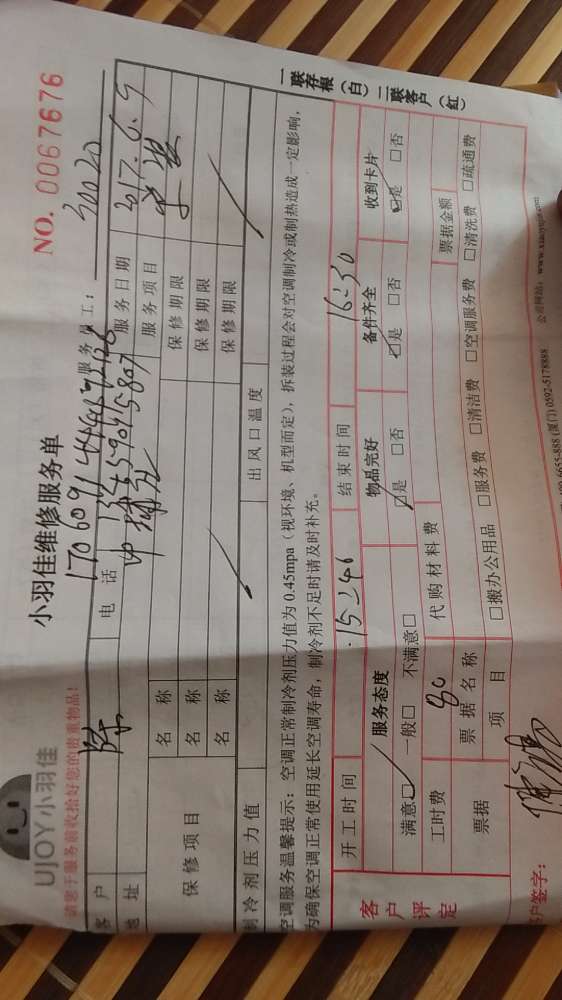 UJOY小羽佳
小羽佳维修服务单
NO. 0067676
请您于服务前收拾好您的贵重物品!
服务员工: 30020
客户 陈 电话
地址 服务日期 2017.6.9
保修项目 服务项目
名称 保修期限
名称 保修期限
名称 保修期限
制冷剂压力值 出风口温度
空调服务温馨提示: 空调正常制冷剂压力值为 0.45mpa (视环境、机型而定), 拆装过程会对空调制冷或制热造成一定影响,
为确保空调正常使用延长空调寿命, 制冷剂不足时请及时补充。
一联存根(白) 二联客户(红)
开工时间 15:46 结束时间 16:30
客户评定
服务态度 物品完好 备件齐全 收到卡片
满意□ 一般□ 不满意□ □是 □否 □是 □否 □是 □否
工时费 80 代购材料费
票据 票据名称 票据金额
项目 □搬办公用品 □服务费 □清洁费 □空调服务费 □清洗费 □疏通费
客户签字:
6655-888 (厦门) 0592-5178888 公司网站: